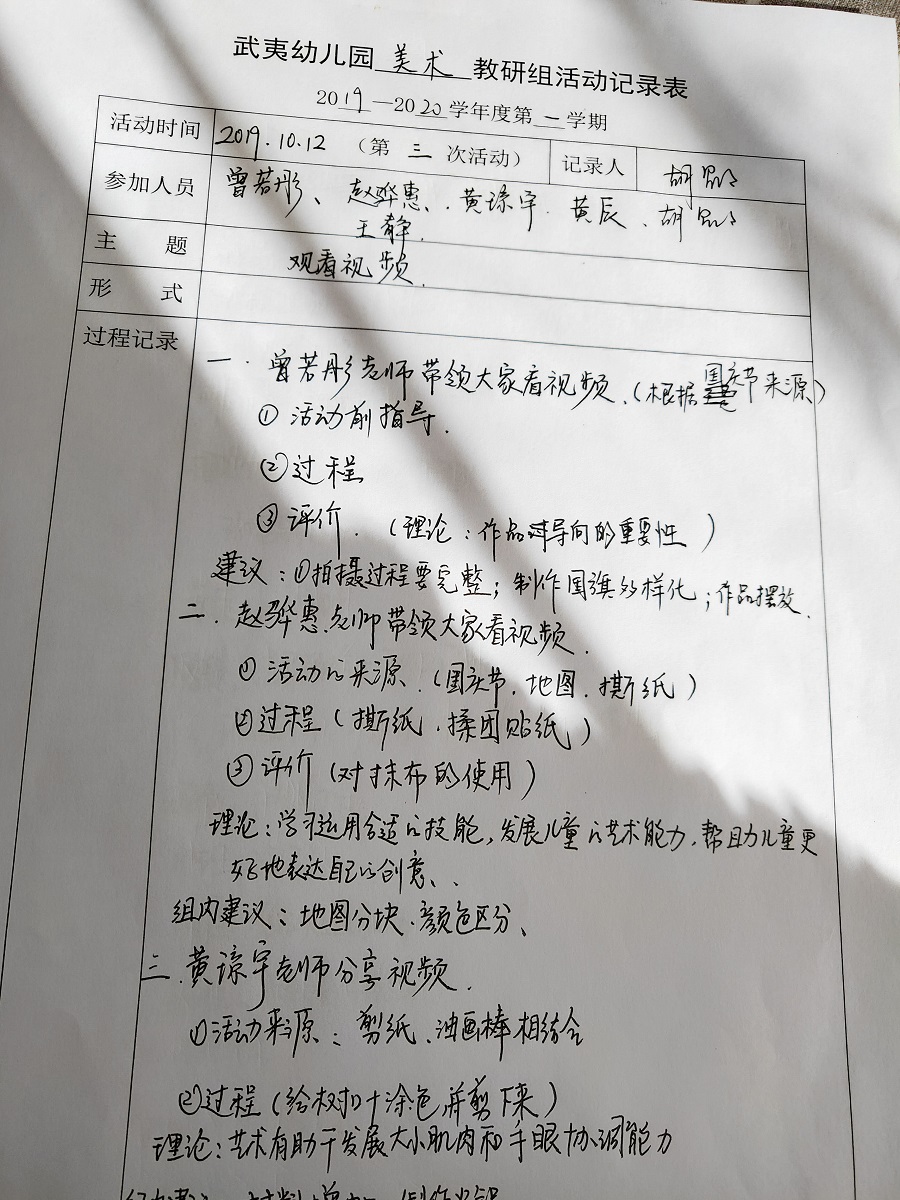 武夷幼儿园 美术 教研组活动记录表
2019—2020学年度第一学期
活动时间 2019.10.12 （第 三 次活动） 记录人 胡
参加人员 曾若彤、赵骅惠、黄琼宇、黄辰、胡
王静.
主 题 观看视频.
形 式
过程记录
一. 曾若彤老师带领大家看视频.（根据国庆节来源）
① 活动前指导.
②过程
③ 评价.（理论：作品对导向的重要性）
建议：①拍摄过程要完整；制作国旗多样化；作品摆放.
二. 赵骅惠老师带领大家看视频.
① 活动的来源.（国庆节.地图.撕纸）
②过程（撕纸.揉团贴纸）
③ 评价（对抹布的使用）
理论：学习运用合适的技能,发展儿童的艺术能力,帮助儿童更
好地表达自己的创意、.
组内建议：地图分块.颜色区分、
三.黄琼宇老师分享视频.
①活动来源：剪纸、油画棒相结合
②过程（给树叶涂色并剪下来）
理论:艺术有助于发展大小肌肉和手眼协调能力